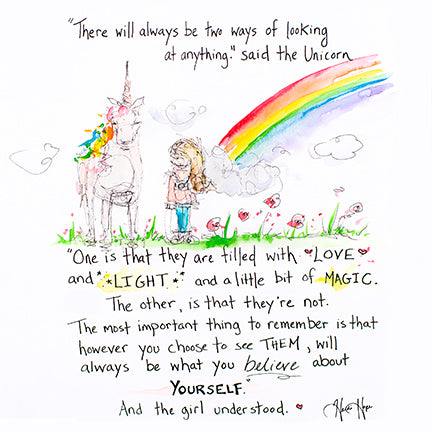 "There will always be two ways of looking
at anything." said the Unicorn
"One is that they are filled with LOVE
and LIGHT and a little bit of MAGIC.
The other, is that they're not.
The most important thing to remember is that
however you choose to see THEM, will
always be what you believe about
YOURSELF."
And the girl understood.